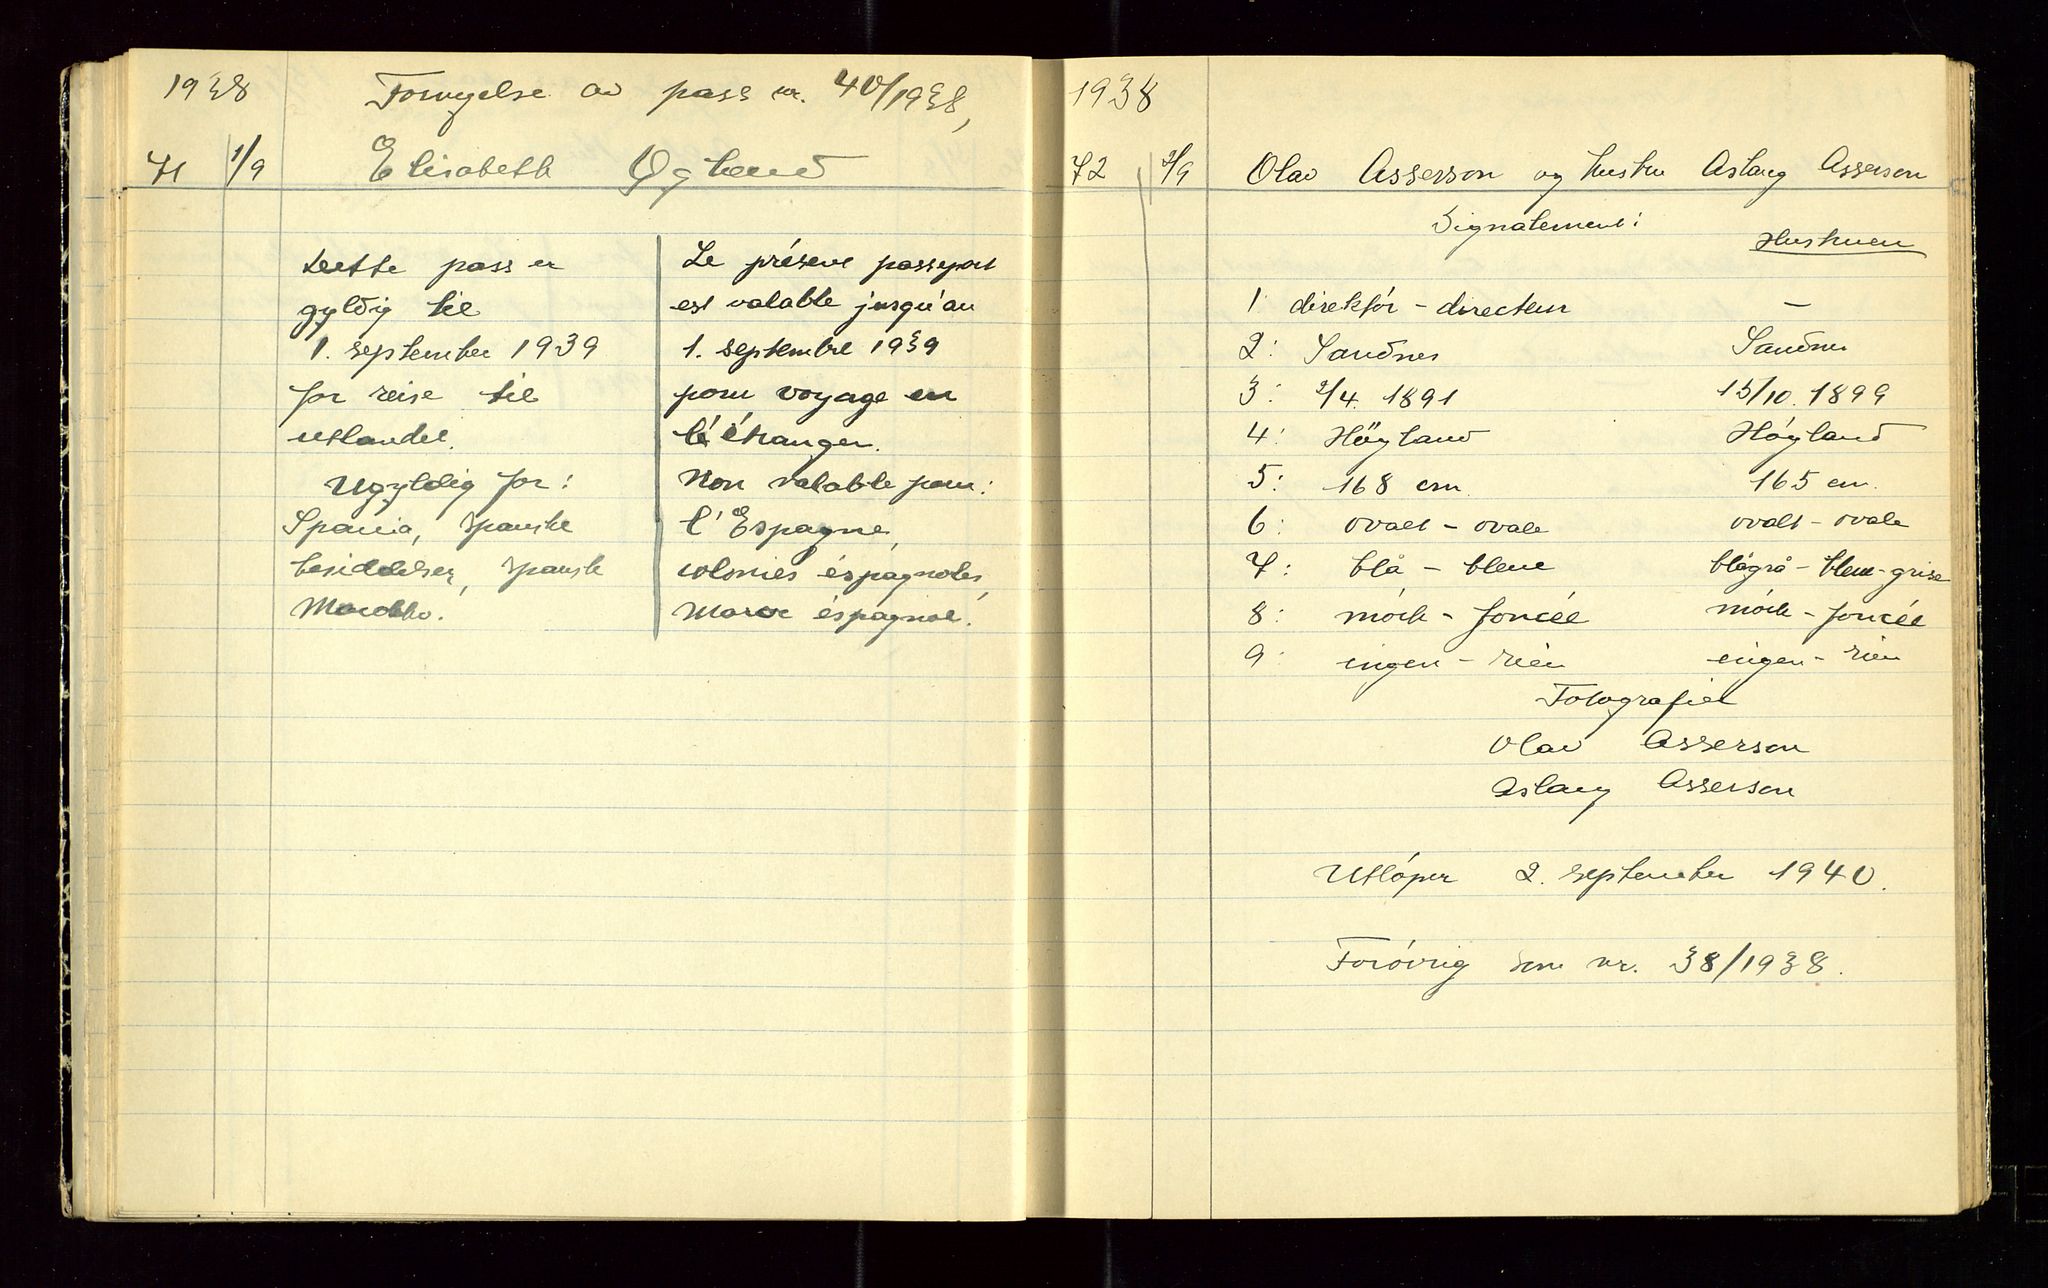 1938 Fornyelse av pass nr. 40/1938,
71 1/9 Elisabeth Øgland
Dette pass er
gyldig til
1. september 1939
for reise til
utlandet.
Ugyldig for:
Spania, spanske
besiddelser, spansk
Marokko.
Le présent passeport
est valable jusqu'au
1. septembre 1939
pour voyage en
l'étranger.
Non valable pour:
l'Espagne,
colonies éspagnoles,
Maroc éspagnol.
1938
72 2/9 Olav Asserson og hustru Aslaug Asserson
Signalement:
Hustruen
1: direktór - directeur –
2: Sandnes Sandnes
3: 2/4. 1891 15/10. 1899
4: Höyland Hóyland
5: 168 cm. 165 cm.
6: ovalt - ovale ovalt - ovale
7: blå - bleue blågrå - bleue-grise
8: mórk - foncée mórk - foncée
9: ingen - rien ingen - rien
Fotografiet
Olav Asserson
Aslaug Asserson
Utlóper 2. september 1940.
Foróvrig som nr. 38/1938.